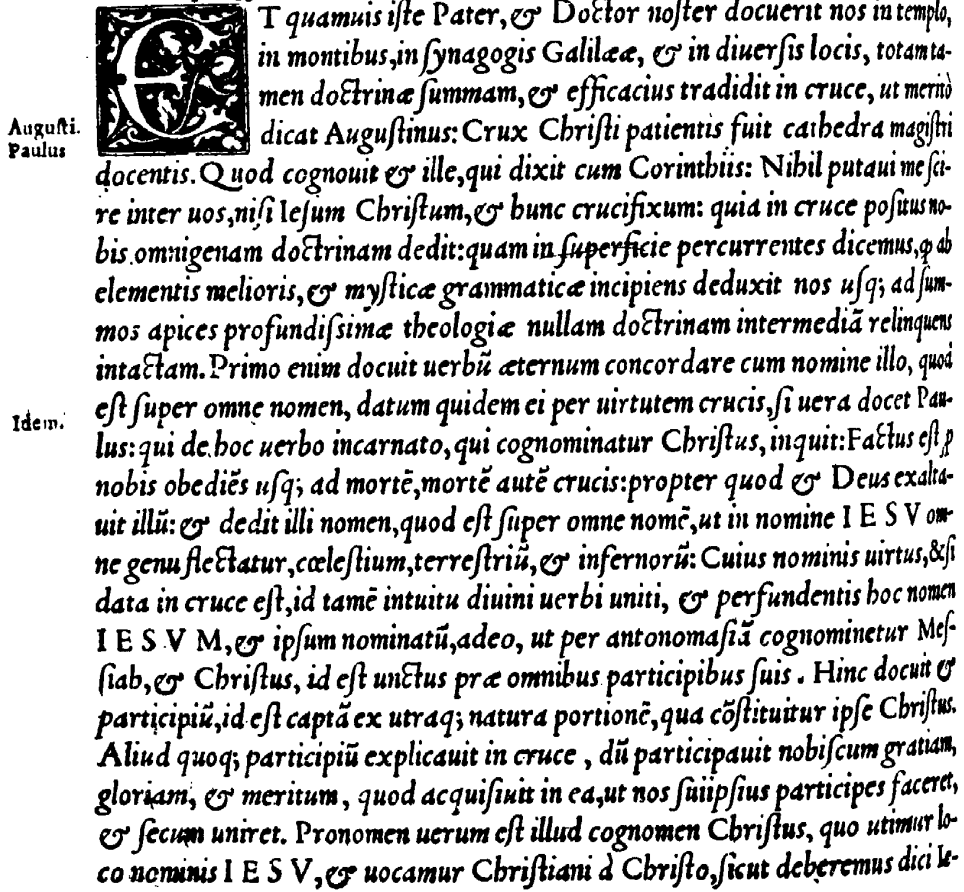 ET quamuis iſte Pater, & Doctor noſter docuerit nos in templo,
in montibus, in ſynagogis Galilææ, & in diuerſis locis, totam ta-
men doctrinæ ſummam, & efficacius tradidit in cruce, ut meritò
Auguſti.
dicat Auguſtinus: Crux Chriſti patientis fuit cathedra magiſtri
Paulus
docentis. Quod cognouit & ille, qui dixit cum Corinthiis: Nihil putaui me ſci-
re inter uos, niſi Ieſum Chriſtum, & hunc crucifixum: quia in cruce poſitus no-
bis omnigenam doctrinam dedit: quam in ſuperficie percurrentes dicemus, ꝙ ab
elementis melioris, & myſticæ grammaticæ incipiens deduxit nos uſq; ad ſum-
mos apices profundiſsimæ theologiæ nullam doctrinam intermediã relinquens
intactam. Primo enim docuit uerbũ æternum concordare cum nomine illo, quod
Idem.
eſt ſuper omne nomen, datum quidem ei per uirtutem crucis, ſi uera docet Pau-
lus: qui de hoc uerbo incarnato, qui cognominatur Chriſtus, inquit: Factus eſt ꝓ
nobis obediẽs uſq; ad mortẽ, mortẽ autẽ crucis: propter quod & Deus exalta-
uit illũ: & dedit illi nomen, quod eſt ſuper omne nomẽ, ut in nomine IESV om-
ne genu flectatur, cœleſtium, terreſtriũ, & infernorũ: Cuius nominis uirtus, & ſi
data in cruce eſt, id tamẽ intuitu diuini uerbi uniti, & perfundentis hoc nomen
IESVM, & ipſum nominatũ, adeo, ut per antonomaſiã cognominetur Meſ-
ſiah, & Chriſtus, id eſt unctus præ omnibus participibus ſuis. Hinc docuit &
participiũ, id eſt captã ex utraq; natura portionẽ, qua cõſtituitur ipſe Chriſtus.
Aliud quoq; participiũ explicauit in cruce, dũ participauit nobiſcum gratiam,
gloriam, & meritum, quod acquiſiuit in ea, ut nos ſuiipſius participes faceret,
& ſecum uniret. Pronomen uerum eſt illud cognomen Chriſtus, quo utimur lo-
co nominis IESV, & uocamur Chriſtiani à Chriſto, ſicut deberemus dici Ie-